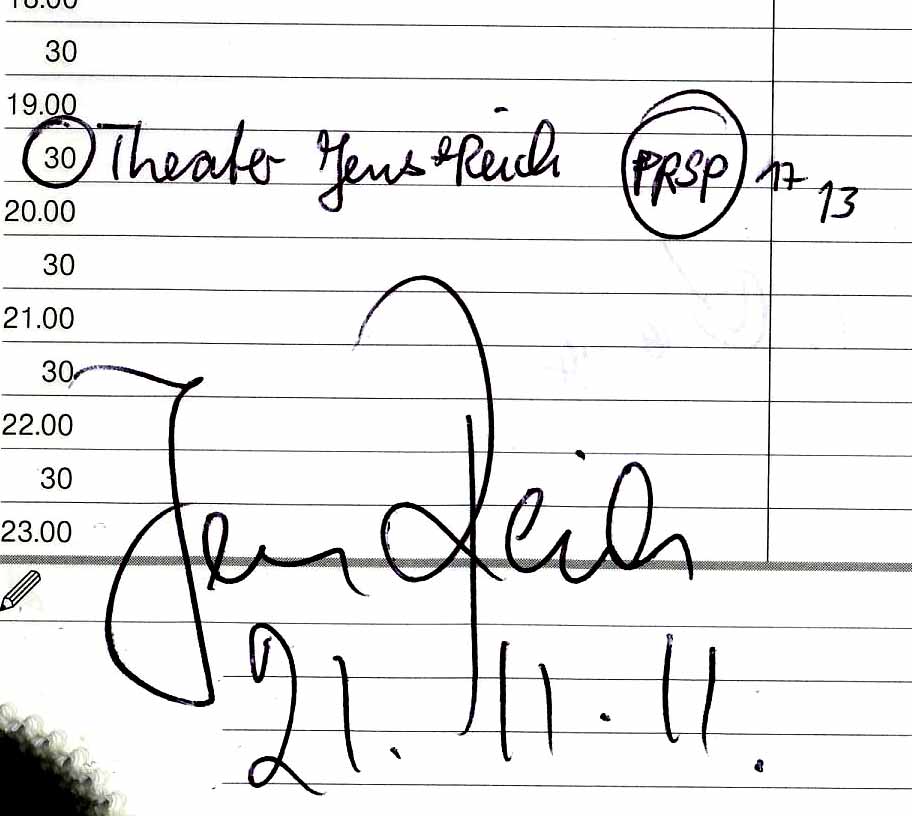 18.00
30
19.00
30 Theater Jens Reich PRSP 17 13
20.00
30
21.00
30
22.00
30
23.00
Jens Reich
21. 11. 11.